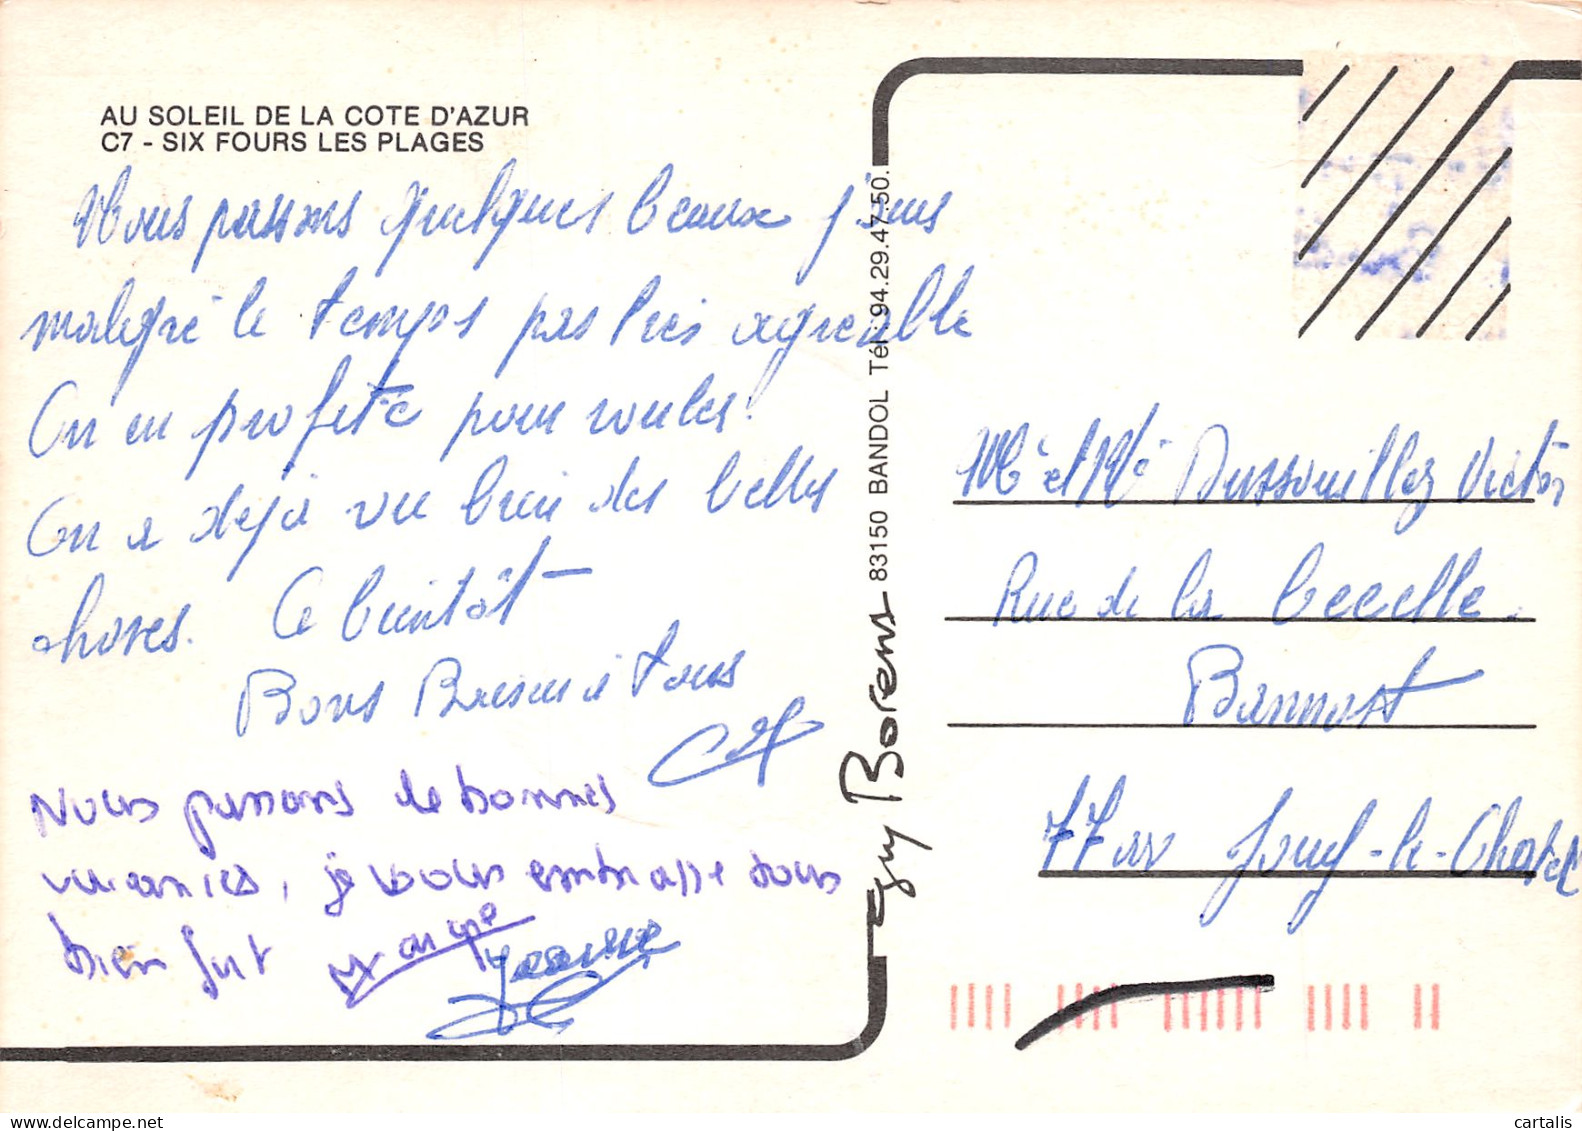 AU SOLEIL DE LA COTE D'AZUR
C7 - SIX FOURS LES PLAGES
Nous passons quelques beaux jours
malgré le temps pas très agréable
On en profite pour rouler.
On a déjà vu bien des belles
choses. A bientôt
Bons Baisers à tous
Nous passons de bonnes
vacances, je vous embrasse tous
bien fort
Jeanne
Guy Borens 83150 BANDOL Tél. 94.29.47.50.
Mr et Mme Victor
Rue de la
Bannost
77 Jouy-le-Chatel
cartalis